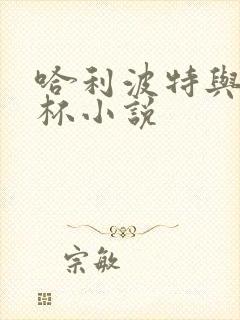 哈利波特與
杯小說
宗敏